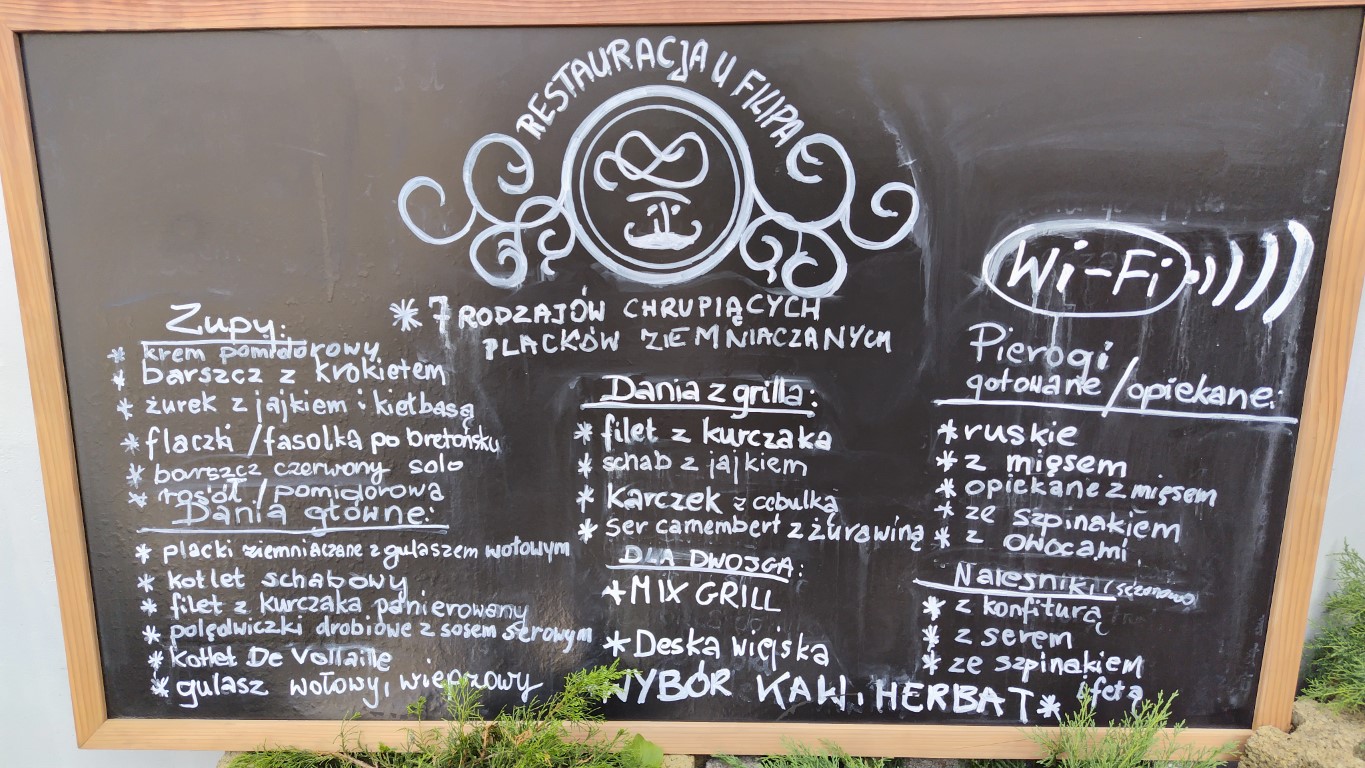 RESTAURACJA U FILIPA
Wi-Fi
* 7 RODZAJÓW CHRUPIĄCYCH
PLACKÓW ZIEMNIACZANYCH
Zupy:
* krem pomidorowy
* barszcz z krokietem
* żurek z jajkiem i kiełbasą
* flaczki / fasolka po bretońsku
* barszcz czerwony solo
* rosół / pomidorowa
Dania główne:
* placki ziemniaczane z gulaszem wołowym
* kotlet schabowy
* filet z kurczaka panierowany
* polędwiczki drobiowe z sosem serowym
* kotlet De Vollaille
* gulasz wołowy, wieprzowy
Dania z grilla:
* filet z kurczaka
* schab z jajkiem
* Karczek z cebulką
* ser camembert z żurawiną
DLA DWOJGA:
* MIX GRILL
* Deska wiejska
WYBÓR KAW i HERBAT *
Pierogi
gotowane / opiekane:
* ruskie
* z mięsem
* opiekane z mięsem
* ze szpinakiem
* z owocami
Naleśniki
* z konfiturą
* z serem
* ze szpinakiem
i fetą